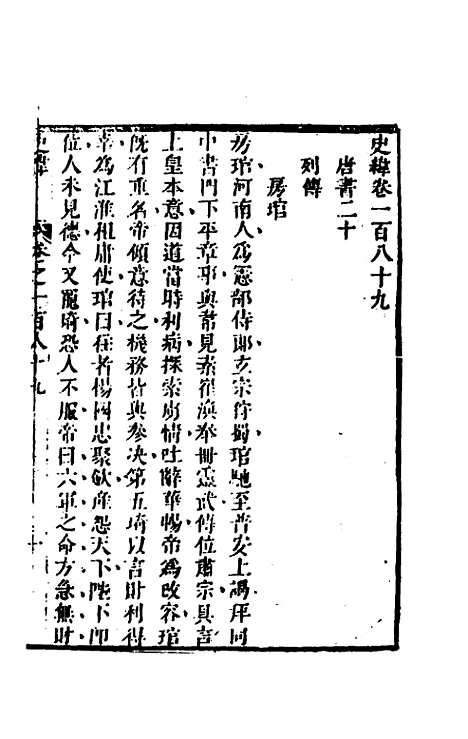 史緯卷一百八十九
唐書二十
列傳
房琯
房琯河南人為憲部侍郎玄宗狩蜀琯馳至普安上謁拜同
中書門下平章事與韋見素崔渙奉冊靈武傳位肅宗具言
上皇本意因道當時利病探索虜情吐辭華暢帝為改容琯
既有重名帝傾意待之機務皆與參決第五琦以言財利得
幸為江淮租庸使琯曰往者楊國忠聚斂產怨天下陛下即
位人未見德今又寵琦恐人不服帝曰六軍之命方急無財
史緯 卷之一百八十九